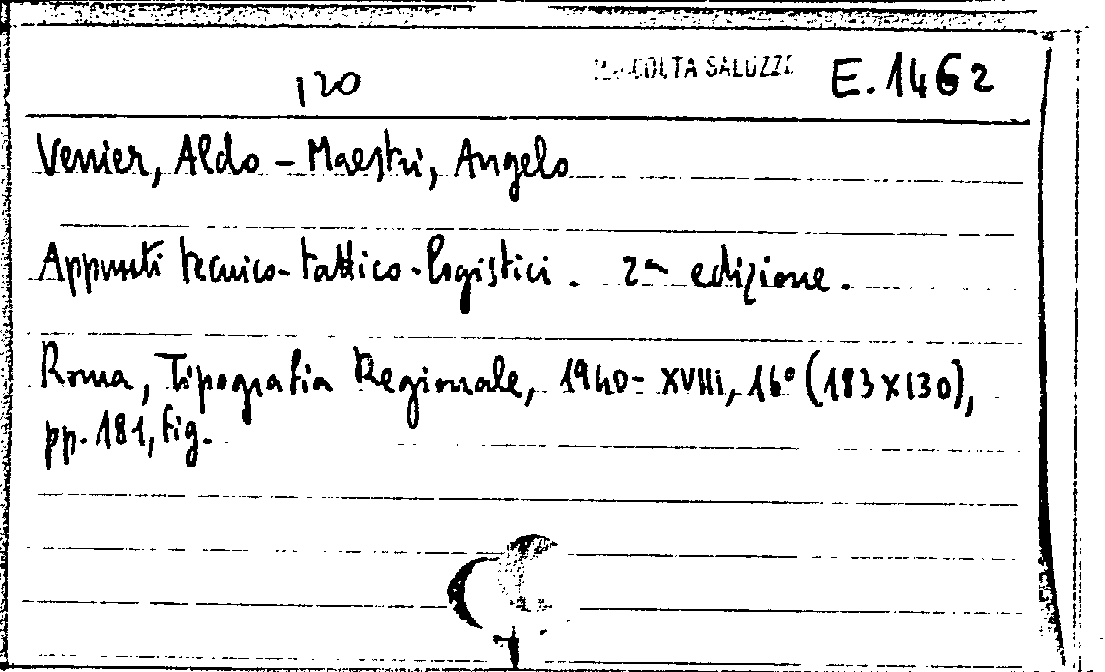 120 RACCOLTA SALUZZO E.1462
Venier, Aldo - Maestri, Angelo
Appunti tecnico-tattico-logistici. 2ª edizione.
Roma, Tipografia Regionale, 1940-XVIII, 16° (183x130),
pp. 181, fig.